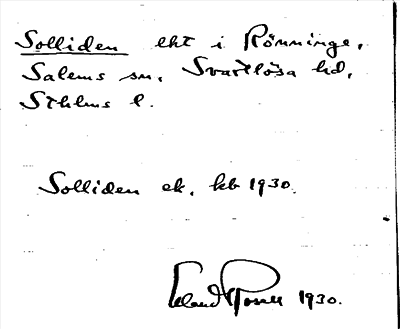 Solliden eht i Rönninge,
Salems sn, Svartlösa hd,
Sthlms l.
Solliden ek. kb 1930.
1930.